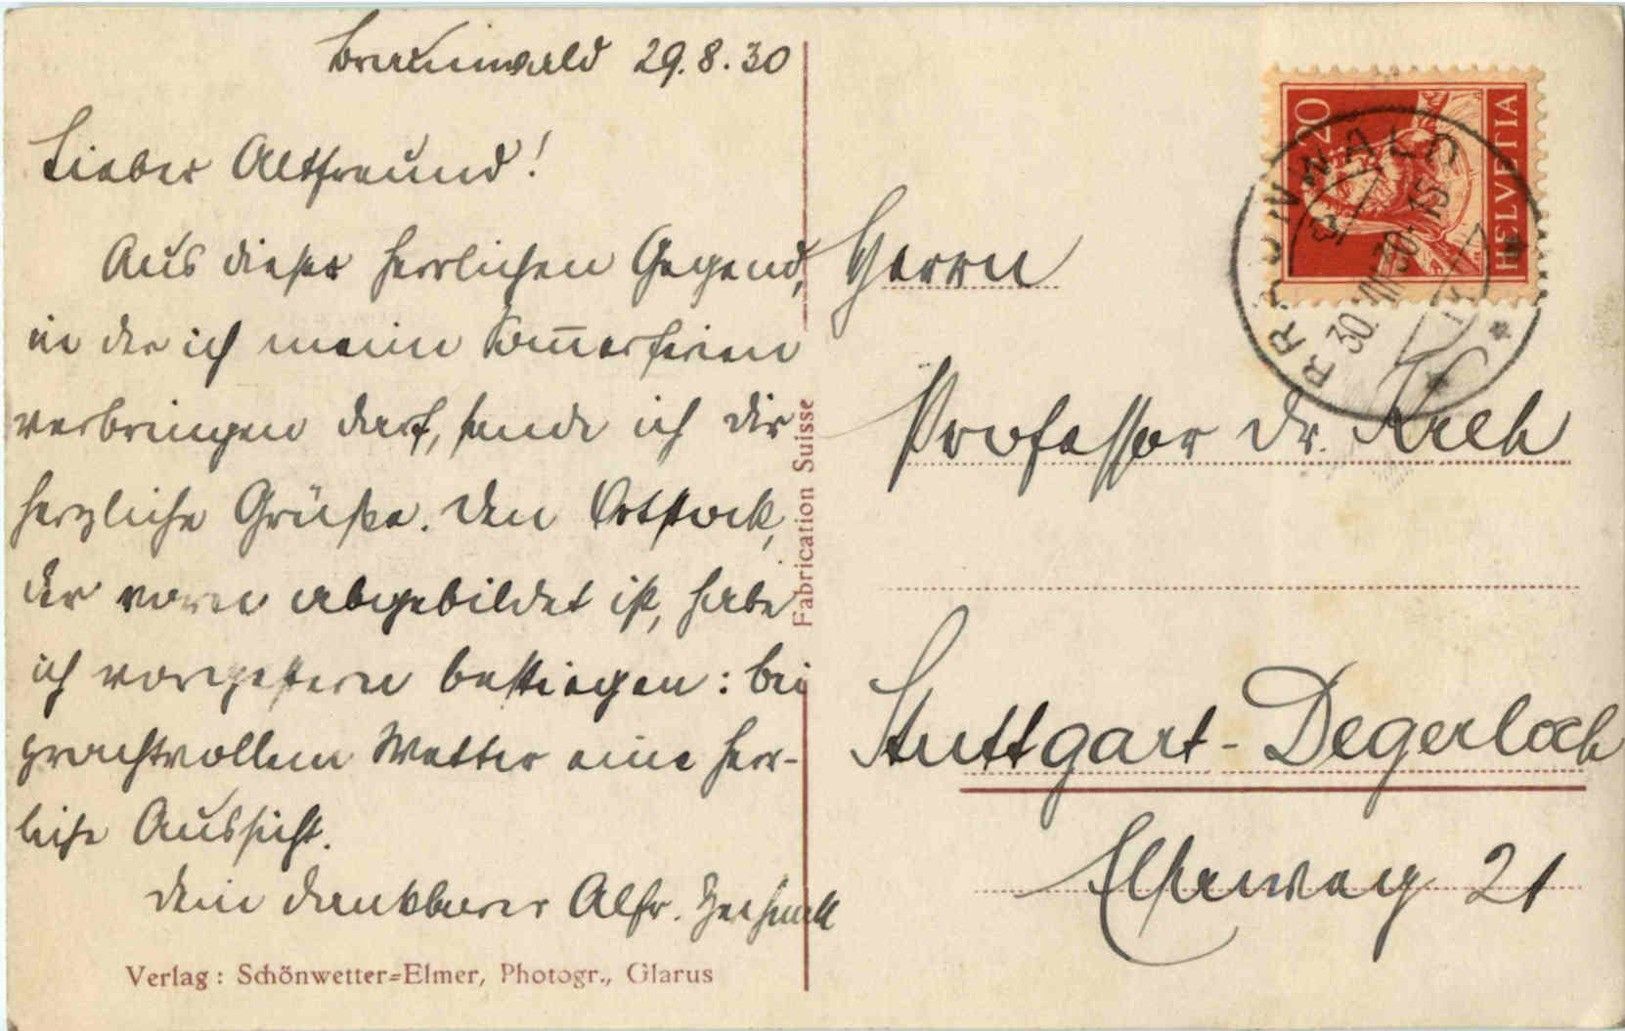 Braunwald 29.8.30
Lieber Altfreund!
Aus dieser herrlichen Gegend,
in der ich meine Som̅erferien
verbringen darf, sende ich dir
herzliche Grüße. Den Ortstock,
der vorn abgebildet ist, habe
ich vorgestern bestiegen: bei
prachtvollem Wetter eine herr-
liche Aussicht.
Dein dankbarer Alfr.
Verlag: Schönwetter=Elmer, Photogr., Glarus
Fabrication Suisse
20
HELVETIA
BRAUNWALD
30.VIII.30.15
Herrn
Professor Dr.
Stuttgart-Degerloch
21